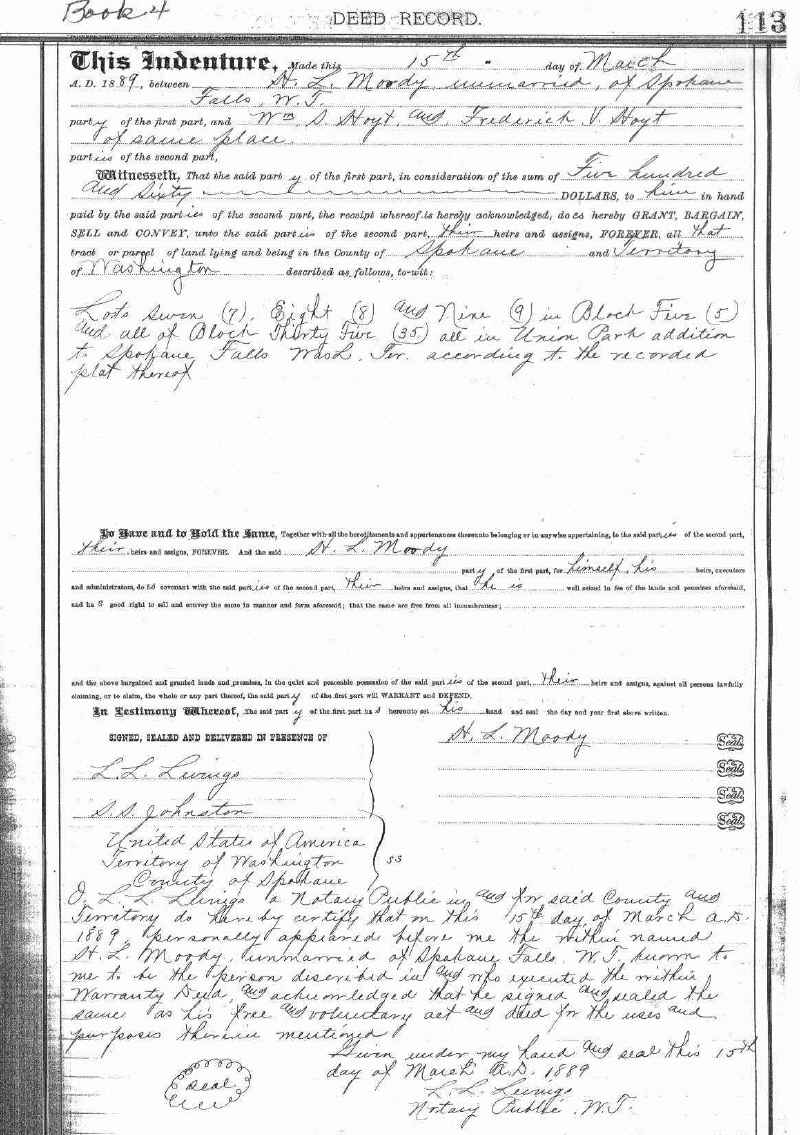 Book 4
DEED RECORD.
113
This Indenture, Made this 15th day of March
A. D. 1889, between H. L. Moody, unmarried, of Spokane
Falls, W. T.
party of the first part, and Wm S. Hoyt, and Frederick V. Hoyt
of same place
parties of the second part,
Witnesseth, That the said party of the first part, in consideration of the sum of Five hundred
and Sixty DOLLARS, to him in hand
paid by the said parties of the second part, the receipt whereof is hereby acknowledged, does hereby GRANT, BARGAIN,
SELL and CONVEY, unto the said parties of the second part, their heirs and assigns, FOREVER, all that
tract or parcel of land lying and being in the County of Spokane and Territory
of Washington described as follows, to-wit:
Lots Seven (7), Eight (8) and Nine (9) in Block Five (5)
and all of Block Thirty Five (35) all in Union Park addition
to Spokane Falls Wash. Ter. according to the recorded
plat thereof
To Have and to Hold the Same, Together with all the hereditaments and appurtenances thereunto belonging or in anywise appertaining, to the said parties of the second part,
their heirs and assigns, FOREVER. And the said H. L. Moody
party of the first part, for himself, his heirs, executors
and administrators, does covenant with the said parties of the second part, their heirs and assigns, that he is well seized in fee of the lands and premises aforesaid,
and has good right to sell and convey the same in manner and form aforesaid; that the same are free from all incumbrances;
and the above bargained and granted lands and premises, in the quiet and peaceable possession of the said parties of the second part, their heirs and assigns, against all persons lawfully
claiming, or to claim, the whole or any part thereof, the said party of the first part will WARRANT and DEFEND.
In Testimony Whereof, The said party of the first part has hereunto set his hand and seal the day and year first above written.
SIGNED, SEALED AND DELIVERED IN PRESENCE OF
H. L. Moody Seal
Seal
Seal
Seal
L. L. Livings
S. S. Johnston
United States of America
Territory of Washington ss
County of Spokane
I, L. L. Livings a Notary Public in and for said County and
Territory do hereby certify that on this 15th day of March A.D.
1889, personally appeared before me the within named
H. L. Moody, unmarried of Spokane Falls, W.T. known to
me to be the person described in and who executed the within
Warranty Deed, and acknowledged that he signed and sealed the
same as his free and voluntary act and deed for the uses and
purposes therein mentioned
Given under my hand and seal this 15th
day of March A.D. 1889
Seal
L. L. Livings
Notary Public, W.T.